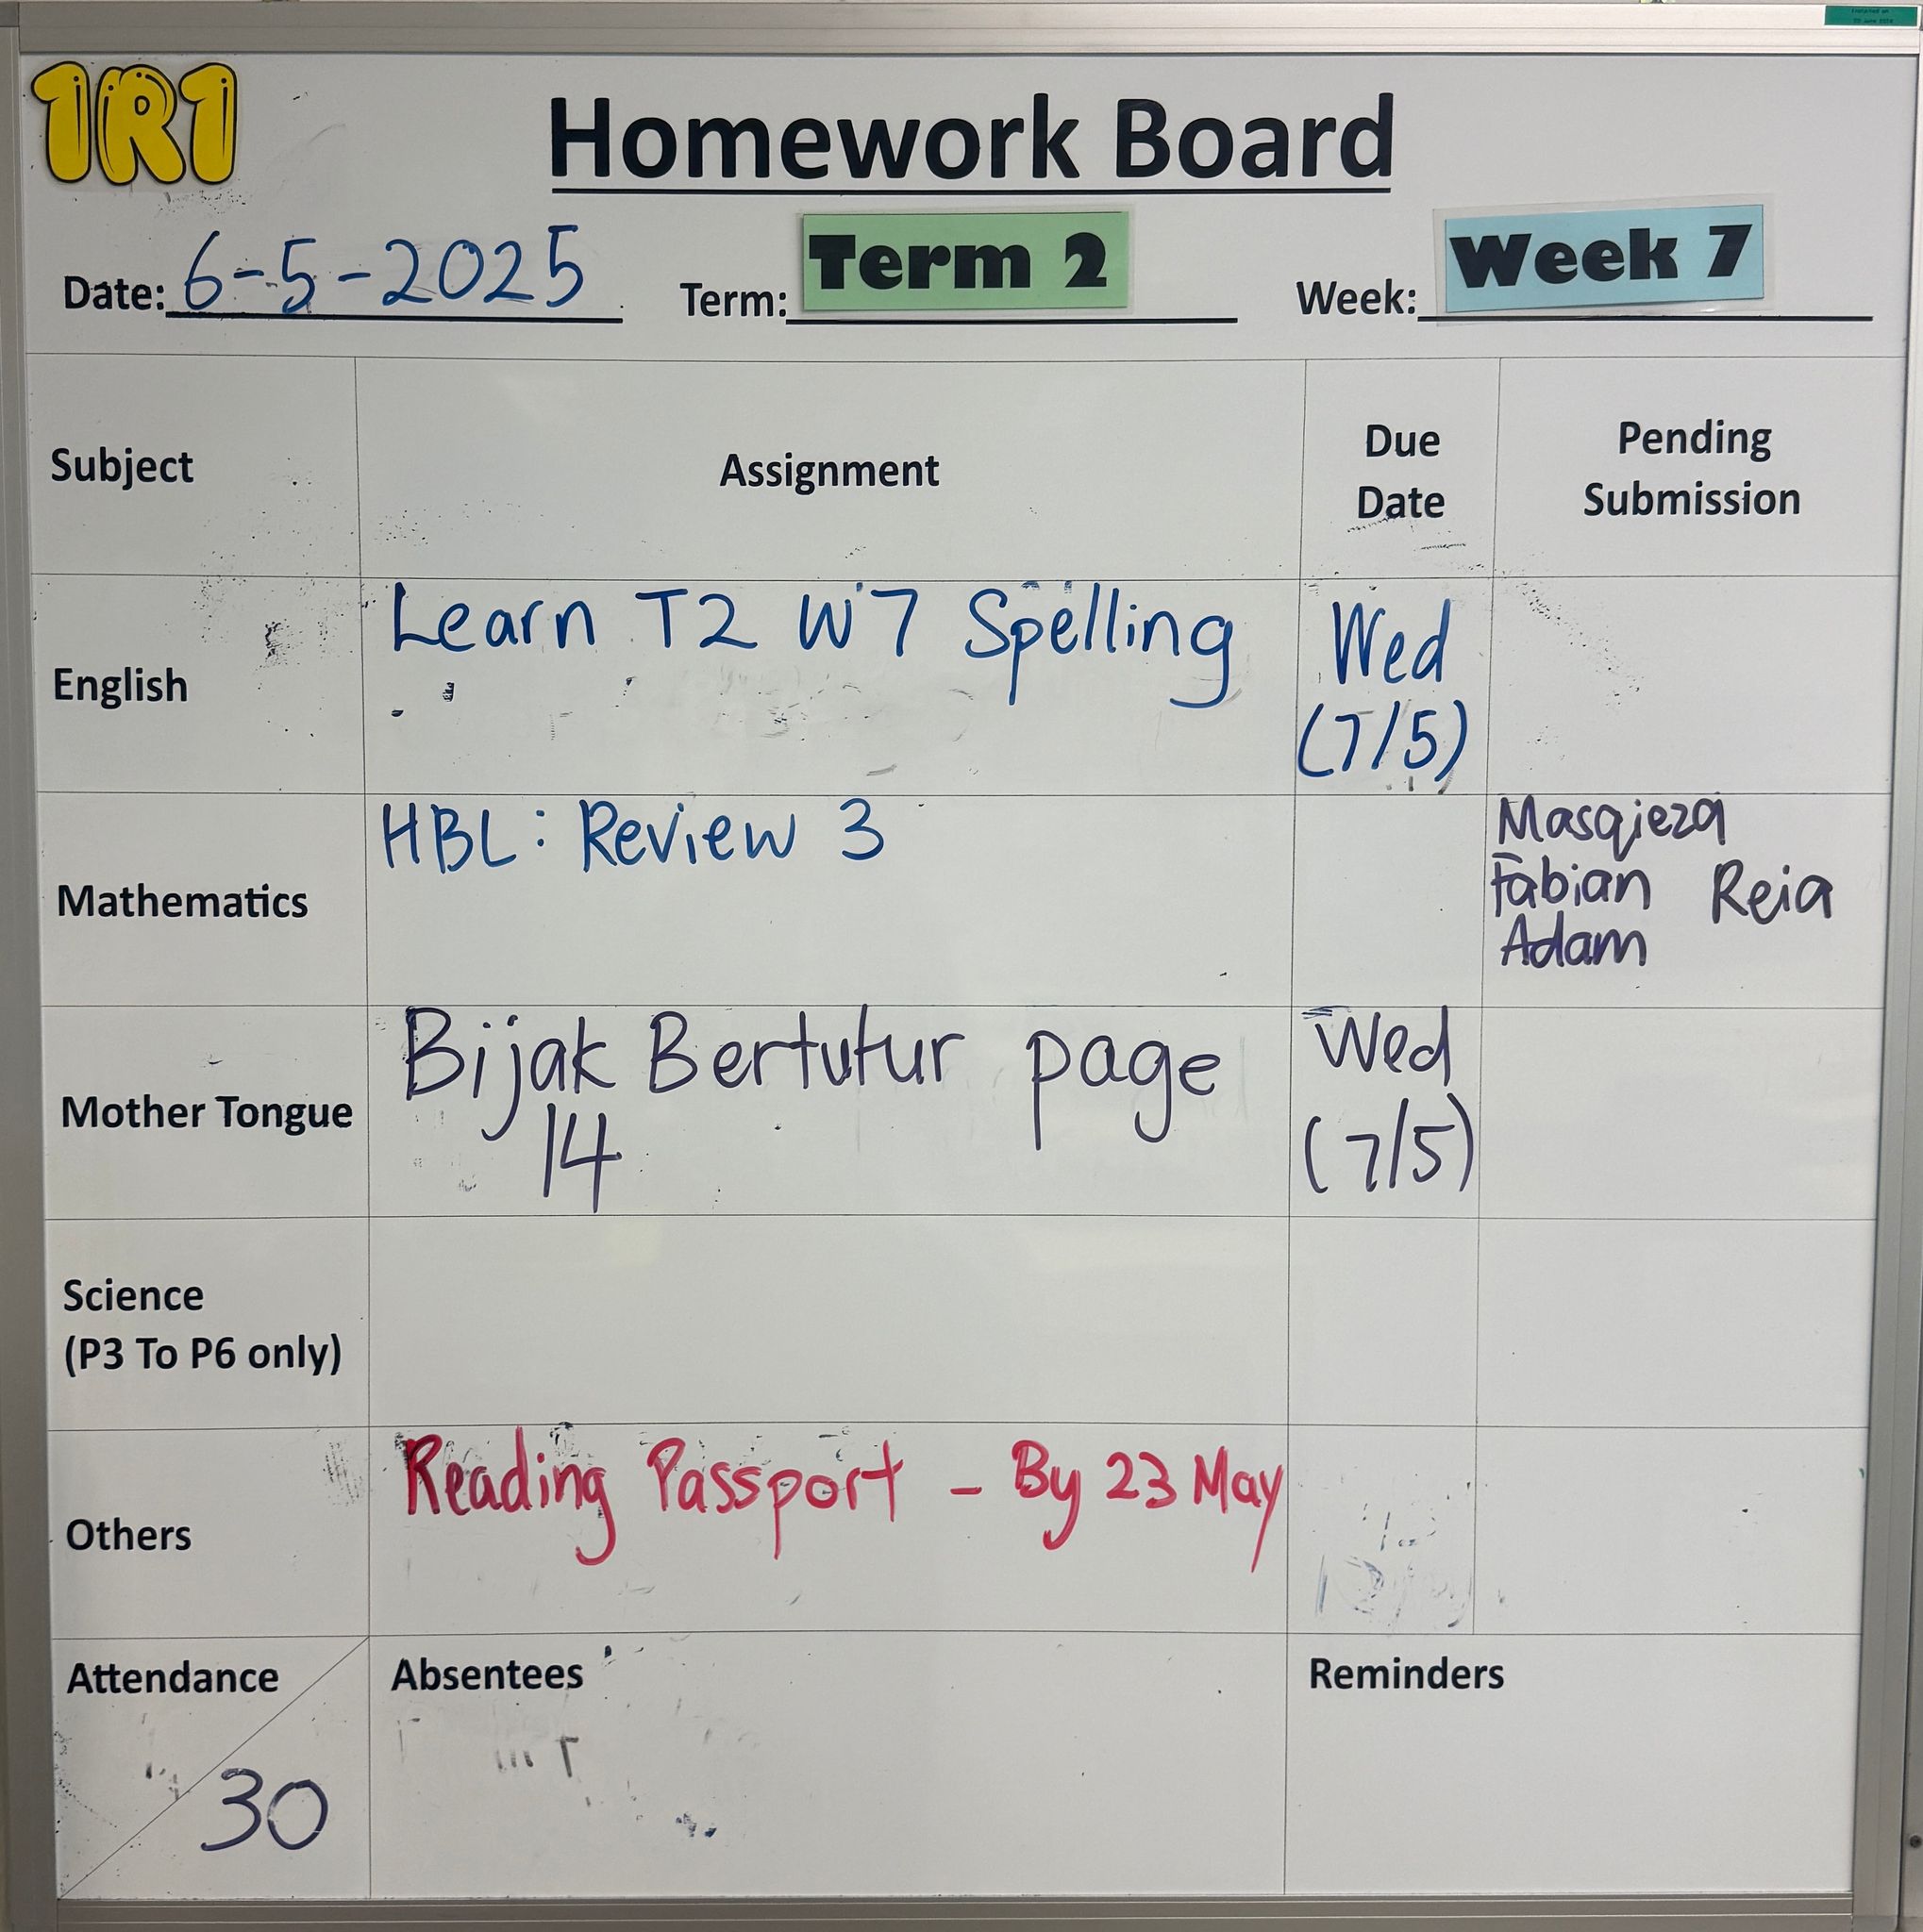 1R1
Homework Board
Date: 6-5-2025 Term: Term 2 Week: Week 7
Subject Assignment Due Date Pending Submission
English Learn T2 W7 Spelling Wed (7/5)
Mathematics HBL: Review 3 Masqieza
Fabian Reia
Adam
Mother Tongue Bijak Bertutur page
14 Wed (7/5)
Science
(P3 To P6 only)
Others Reading Passport - By 23 May
Attendance Absentees Reminders
30